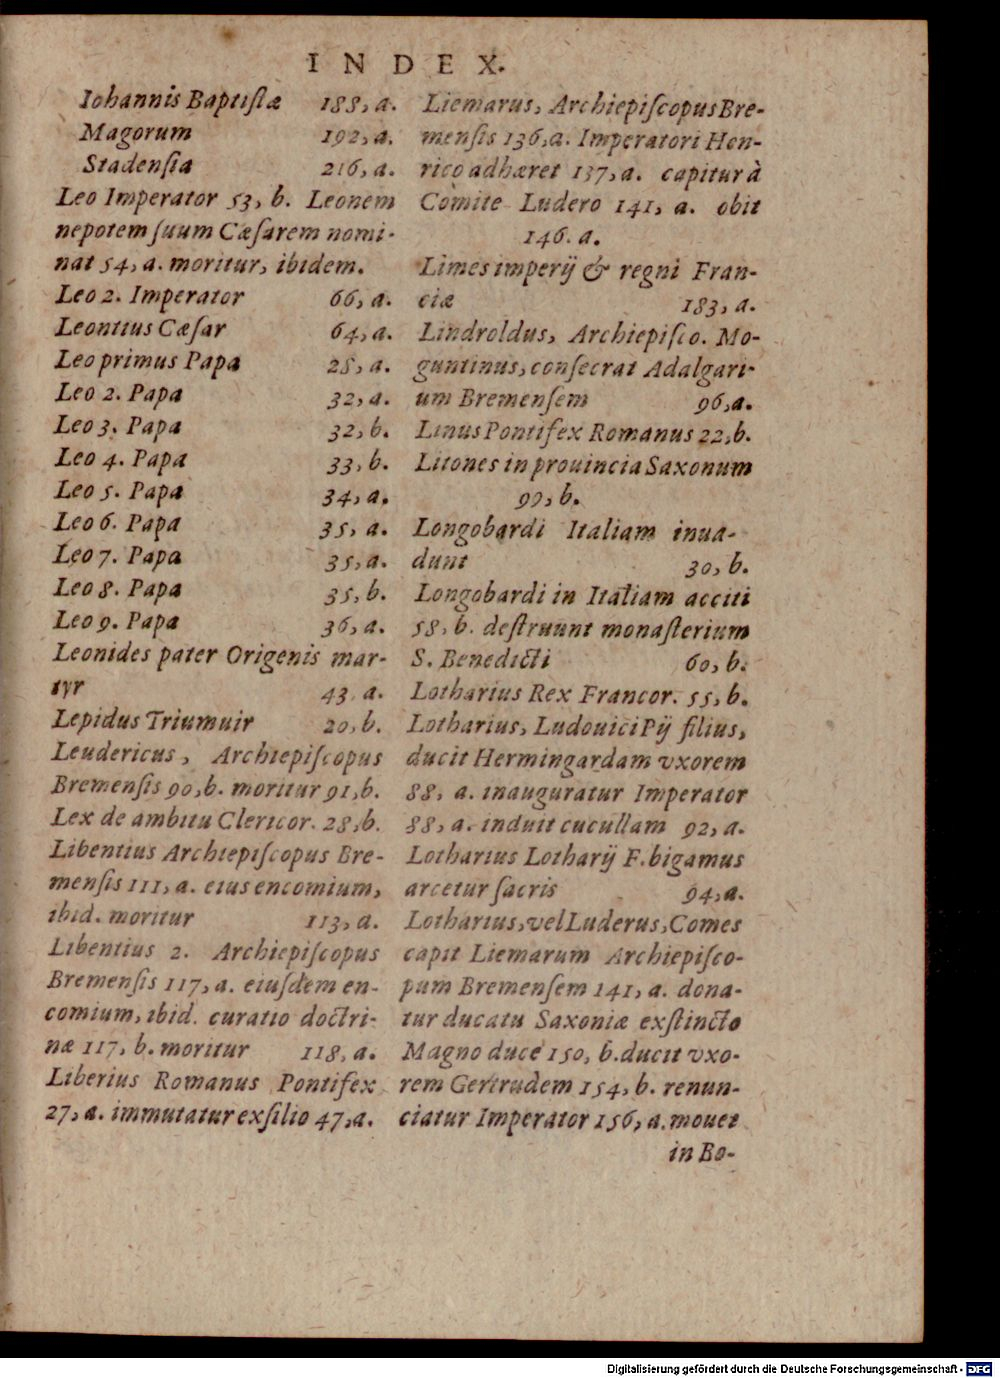 INDEX.
Iohannis Baptistæ 188, a.
Magorum 192, a.
Stadensia 216, a.
Leo Imperator 53, b. Leonem
nepotem suum Cæsarem nomi-
nat 54, a. moritur, ibidem.
Leo 2. Imperator 66, a.
Leontius Cæsar 64, a.
Leo primus Papa 28, a.
Leo 2. Papa 32, a.
Leo 3. Papa 32, b.
Leo 4. Papa 33, b.
Leo 5. Papa 34, a.
Leo 6. Papa 35, a.
Leo 7. Papa 35, a.
Leo 8. Papa 35, b.
Leo 9. Papa 36, a.
Leonides pater Origenis mar-
tyr 43 a.
Lepidus Triumuir 20, b.
Leudericus, Archiepiscopus
Bremensis 90, b. moritur 91, b.
Lex de ambitu Clericor. 28, b.
Libentius Archiepiscopus Bre-
mensis 111, a. eius encomium,
ibid. moritur 113, a.
Libentius 2. Archiepiscopus
Bremensis 117, a. eiusdem en-
comium, ibid. curatio doctri-
næ 117, b. moritur 118, a.
Liberius Romanus Pontifex
27, a. immutatur exsilio 47, a.
Liemarus, Archiepiscopus Bre-
mensis 136, a. Imperatori Hen-
rico adhæret 137, a. capitur à
Comite Ludero 141, a. obit
146. a.
Limes imperij & regni Fran-
ciæ 183, a.
Lindroldus, Archiepisco. Mo-
guntinus, consecrat Adalgari-
um Bremensem 96, a.
Linus Pontifex Romanus 22, b.
Litones in prouincia Saxonum
99, b.
Longobardi Italiam inua-
dunt 30, b.
Longobardi in Italiam acciti
58, b. destruunt monasterium
S. Benedicti 60, b.
Lotharius Rex Francor. 55, b.
Lotharius, Ludouici Pij filius,
ducit Hermingardam vxorem
88, a. inauguratur Imperator
88, a. induit cucullam 92, a.
Lotharius Lotharij F. bigamus
arcetur sacris 94, a.
Lotharius, vel Luderus, Comes
capit Liemarum Archiepisco-
pum Bremensem 141, a. dona-
tur ducatu Saxoniæ exstincto
Magno duce 150, b. ducit vxo-
rem Gertrudem 154, b. renun-
ciatur Imperator 156, a. mouet
in Bo-
Digitalisierung gefördert durch die Deutsche Forschungsgemeinschaft - DFG